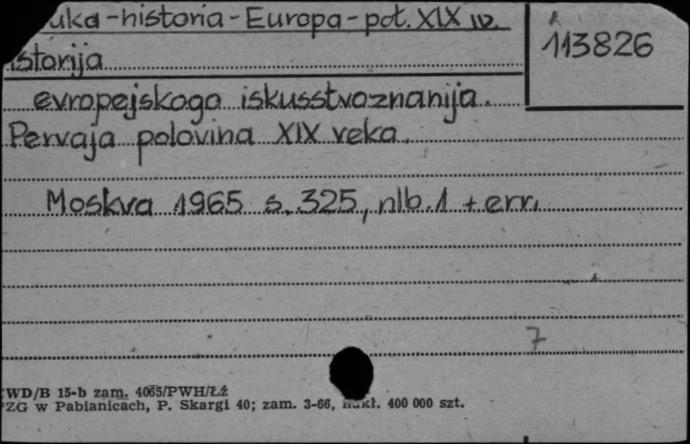 uka-historia-Europa-poł. XIX w.
113826
istorija
evropejskogo iskusstvoznanija.
Pervaja polovina XIX veka.
Moskva 1965 s. 325, nlb. 1 + err.
7
WD/B 15-b zam. 4065/PWH/Łź
ZG w Pabianicach, P. Skargi 40; zam. 3-66, nakł. 400 000 szt.